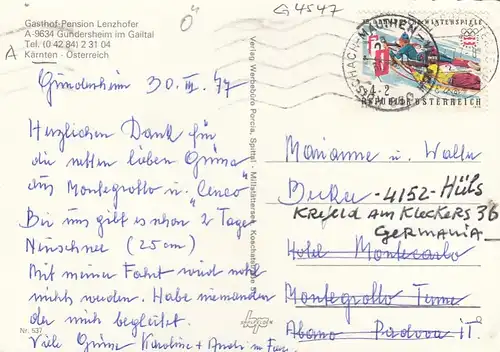 G 4547
Ö
Gasthof-Pension Lenzhofer
A-9634 Gundersheim im Gailtal
Tel. (0 42 84) 2 31 04
A Kärnten - Österreich
Gundersheim 30. III. 77
Herzlichen Dank für
die netten lieben Grüsse
aus Montegrotto u.
Bei uns gibt es schon 2 Tage
Neuschnee (25 cm)
Mit meiner Fahrt wird wohl
nicht werden. Habe niemanden
der mich begleitet.
Viele Grüsse Karoline +
Nr. 537
Verlag Werbebüro Porcia, Spittal - Millstättersee,
MAUTHEN
WINTERSPIELE
REPUBLIK ÖSTERREICH
Marianne u. Walter
-4152-Hüls
Krefeld Am Kleckers 36
Germania
Hotel Montecarlo
Montegrotto Terme
Abano Padova IT.